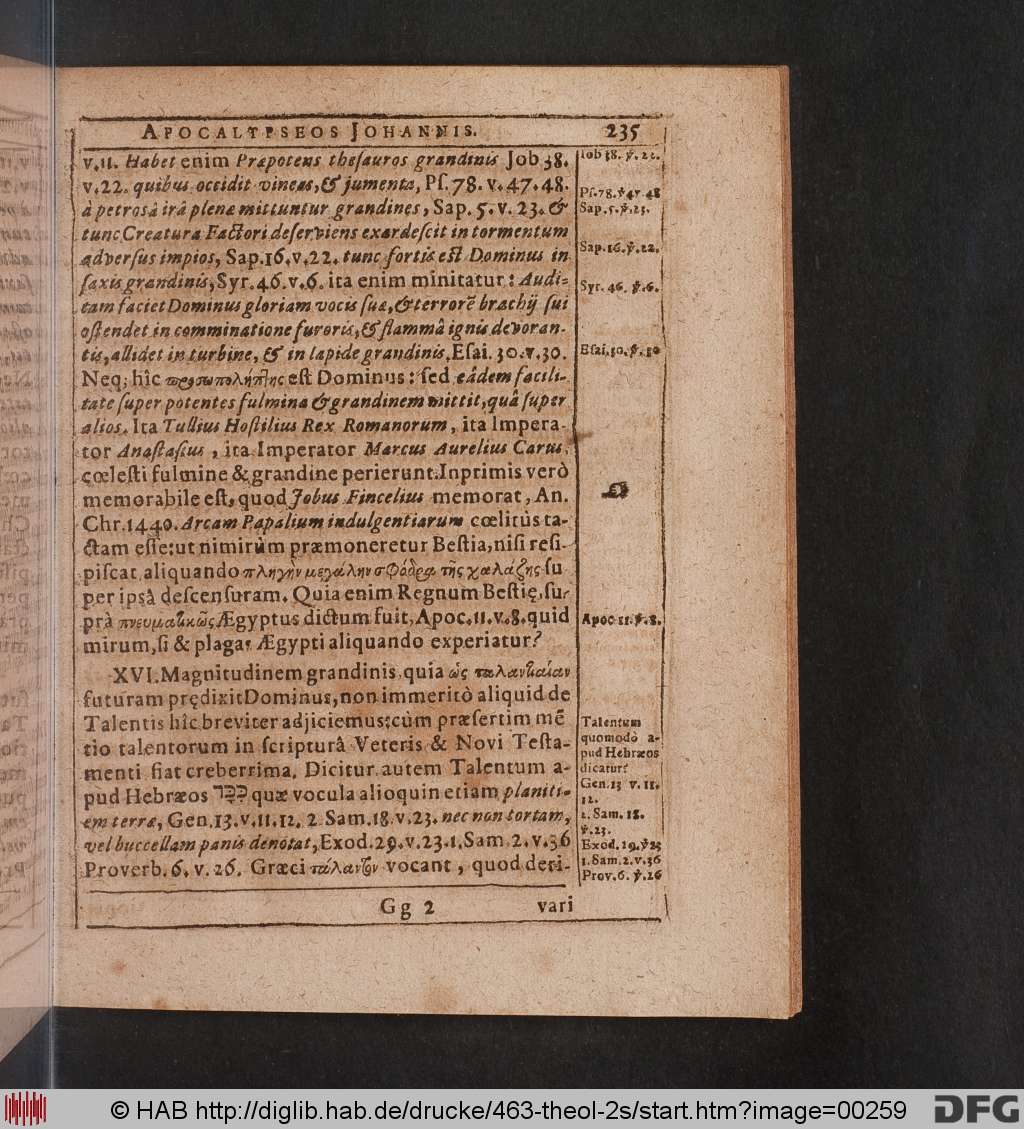 APOCALYPSEOS JOHANNIS. 235
v.11. Habet enim Præpotens theſauros grandinis Job 38.
v.22. quibus occidit vineas, & jumenta, Pſ. 78. v. 47. 48.
à petrosâ irâ plenæ mittuntur grandines, Sap. 5. v. 23. &
tunc Creatura Factori deſerviens exardeſcit in tormentum
adverſus impios, Sap.16.v.22. tunc fortis eſt Dominus in
ſaxis grandinis, Syr. 46. v. 6. ita enim minitatur: Audi-
tam faciet Dominus gloriam vocis ſuæ, & terrorē brachij ſui
oſtendet in comminatione furoris, & flammâ ignis devoran-
tis, allidet in turbine, & in lapide grandinis, Eſai. 30. v. 30.
Neq; hîc προσωπολήπτης eſt Dominus: ſed eâdem facili-
tate ſuper potentes fulmina & grandinem mittit, quâ ſuper
alios. Ita Tullius Hoſtilius Rex Romanorum, ita Impera-
tor Anaſtaſius, ita Imperator Marcus Aurelius Carus.
cœleſti fulmine & grandine perierunt. Inprimis verò
memorabile eſt, quod Jobus Fincelius memorat, An.
Chr. 1440. Arcam Papalium indulgentiarum cœlitùs ta-
ctam eſſe: ut nimirùm præmoneretur Beſtia, niſi reſi-
piſcat, aliquando πληγὴν μεγάλην σφόδρα τῆς χαλάζης ſu
per ipsâ deſcenſuram. Quia enim Regnum Beſtię, ſu-
prà πνευματικῶς Ægyptus dictum fuit, Apoc. 11. v. 8. quid
mirum, ſi & plagas Ægypti aliquando experiatur?
XVI. Magnitudinem grandinis, quia ὡς ταλαντιαίαν
futuram prędixit Dominus, non immeritò aliquid de
Talentis hîc breviter adjiciemus: cùm præſertim mē
tio talentorum in ſcripturâ Veteris & Novi Teſta-
menti fiat creberrima. Dicitur autem Talentum a-
pud Hebræos כִּכָּר quæ vocula alioquin etiam planiti-
em terræ, Gen. 13. v. 11. 12. 2. Sam. 18. v. 23. nec non tortam,
vel buccellam panis denotat, Exod. 29. v. 23. 1. Sam. 2. v. 36
Proverb. 6. v. 26. Græci τάλαντον vocant, quod deri-
Gg 2 vari
Iob 38. ℣. 22.
Pſ. 78. ℣ 47. 48
Sap. 5. ℣. 23.
Sap. 16. ℣. 22.
Syr. 46. ℣. 6.
Eſai. 30. ℣. 30
Apoc 11. ℣. 8.
Talentum
quomodò a-
pud Hebræos
dicatur?
Gen. 13 v. 11.
12.
2. Sam. 18.
℣. 23.
Exod. 29. ℣ 23
1. Sam. 2. v. 36
Prov. 6. ℣. 26
© HAB http://diglib.hab.de/drucke/463-theol-2s/start.htm?image=00259
DFG